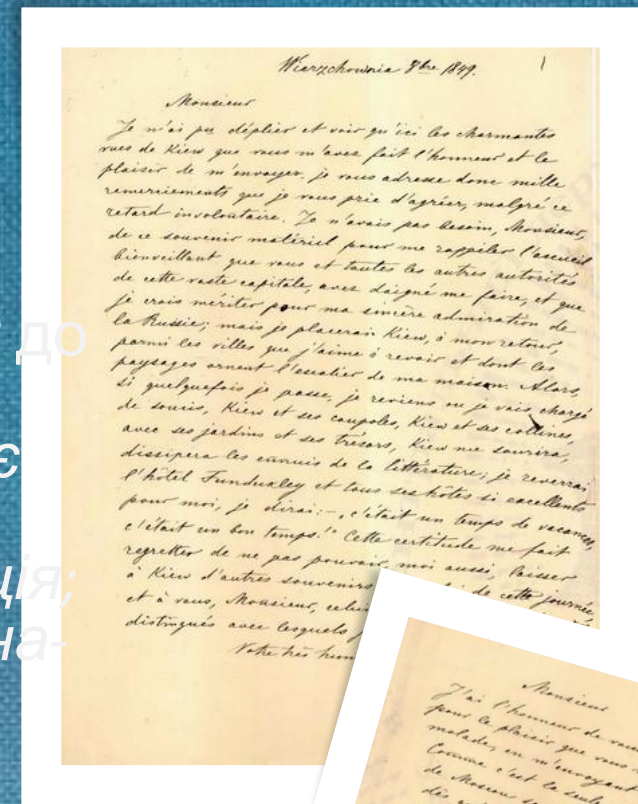 Wierzchownia 8bre 1849. 1
Monsieur
Je n'ai pu déplier et voir qu'ici les charmantes
vues de Kiew que vous m'avez fait l'honneur et le
plaisir de m'envoyer. je vous adresse donc mille
remerciements que je vous prie d'agréer, malgré ce
retard involontaire. Je n'avais pas besoin, Monsieur,
de ce souvenir matériel pour me rappeler l'accueil
bienveillant que vous et toutes les autres autorités
de cette vaste capitale, avez daigné me faire, et que
je crois mériter pour ma sincère admiration de
la Russie; mais je placerai Kiew, à mon retour,
parmi les villes que j'aime à revoir et dont les
paysages ornent l'escalier de ma maison. Alors,
si quelquefois je passe, je reviens ou je vais chargé
de soucis, Kiew et ses coupoles, Kiew et ses collines,
avec ses jardins et ses trésors, Kiew me sourira,
dissipera les ennuis de la littérature; je reverrai
l'hôtel Fundukley et tous ses hôtes si excellents
pour moi, je dirai: – „c'était un temps de vacances,
c'était un bon temps." Cette certitude me fait
regretter de ne pas pouvoir, moi aussi, laisser
à Kiew d'autres souvenirs de cette journée
et à vous, Monsieur,
distingués avec lesquels
Votre très
до
є
ція;
на-
Monsieur
J'ai l'honneur de
pour le plaisir que vous
malade, en m'envoyant
Comme c'est la
de Moscou
dès